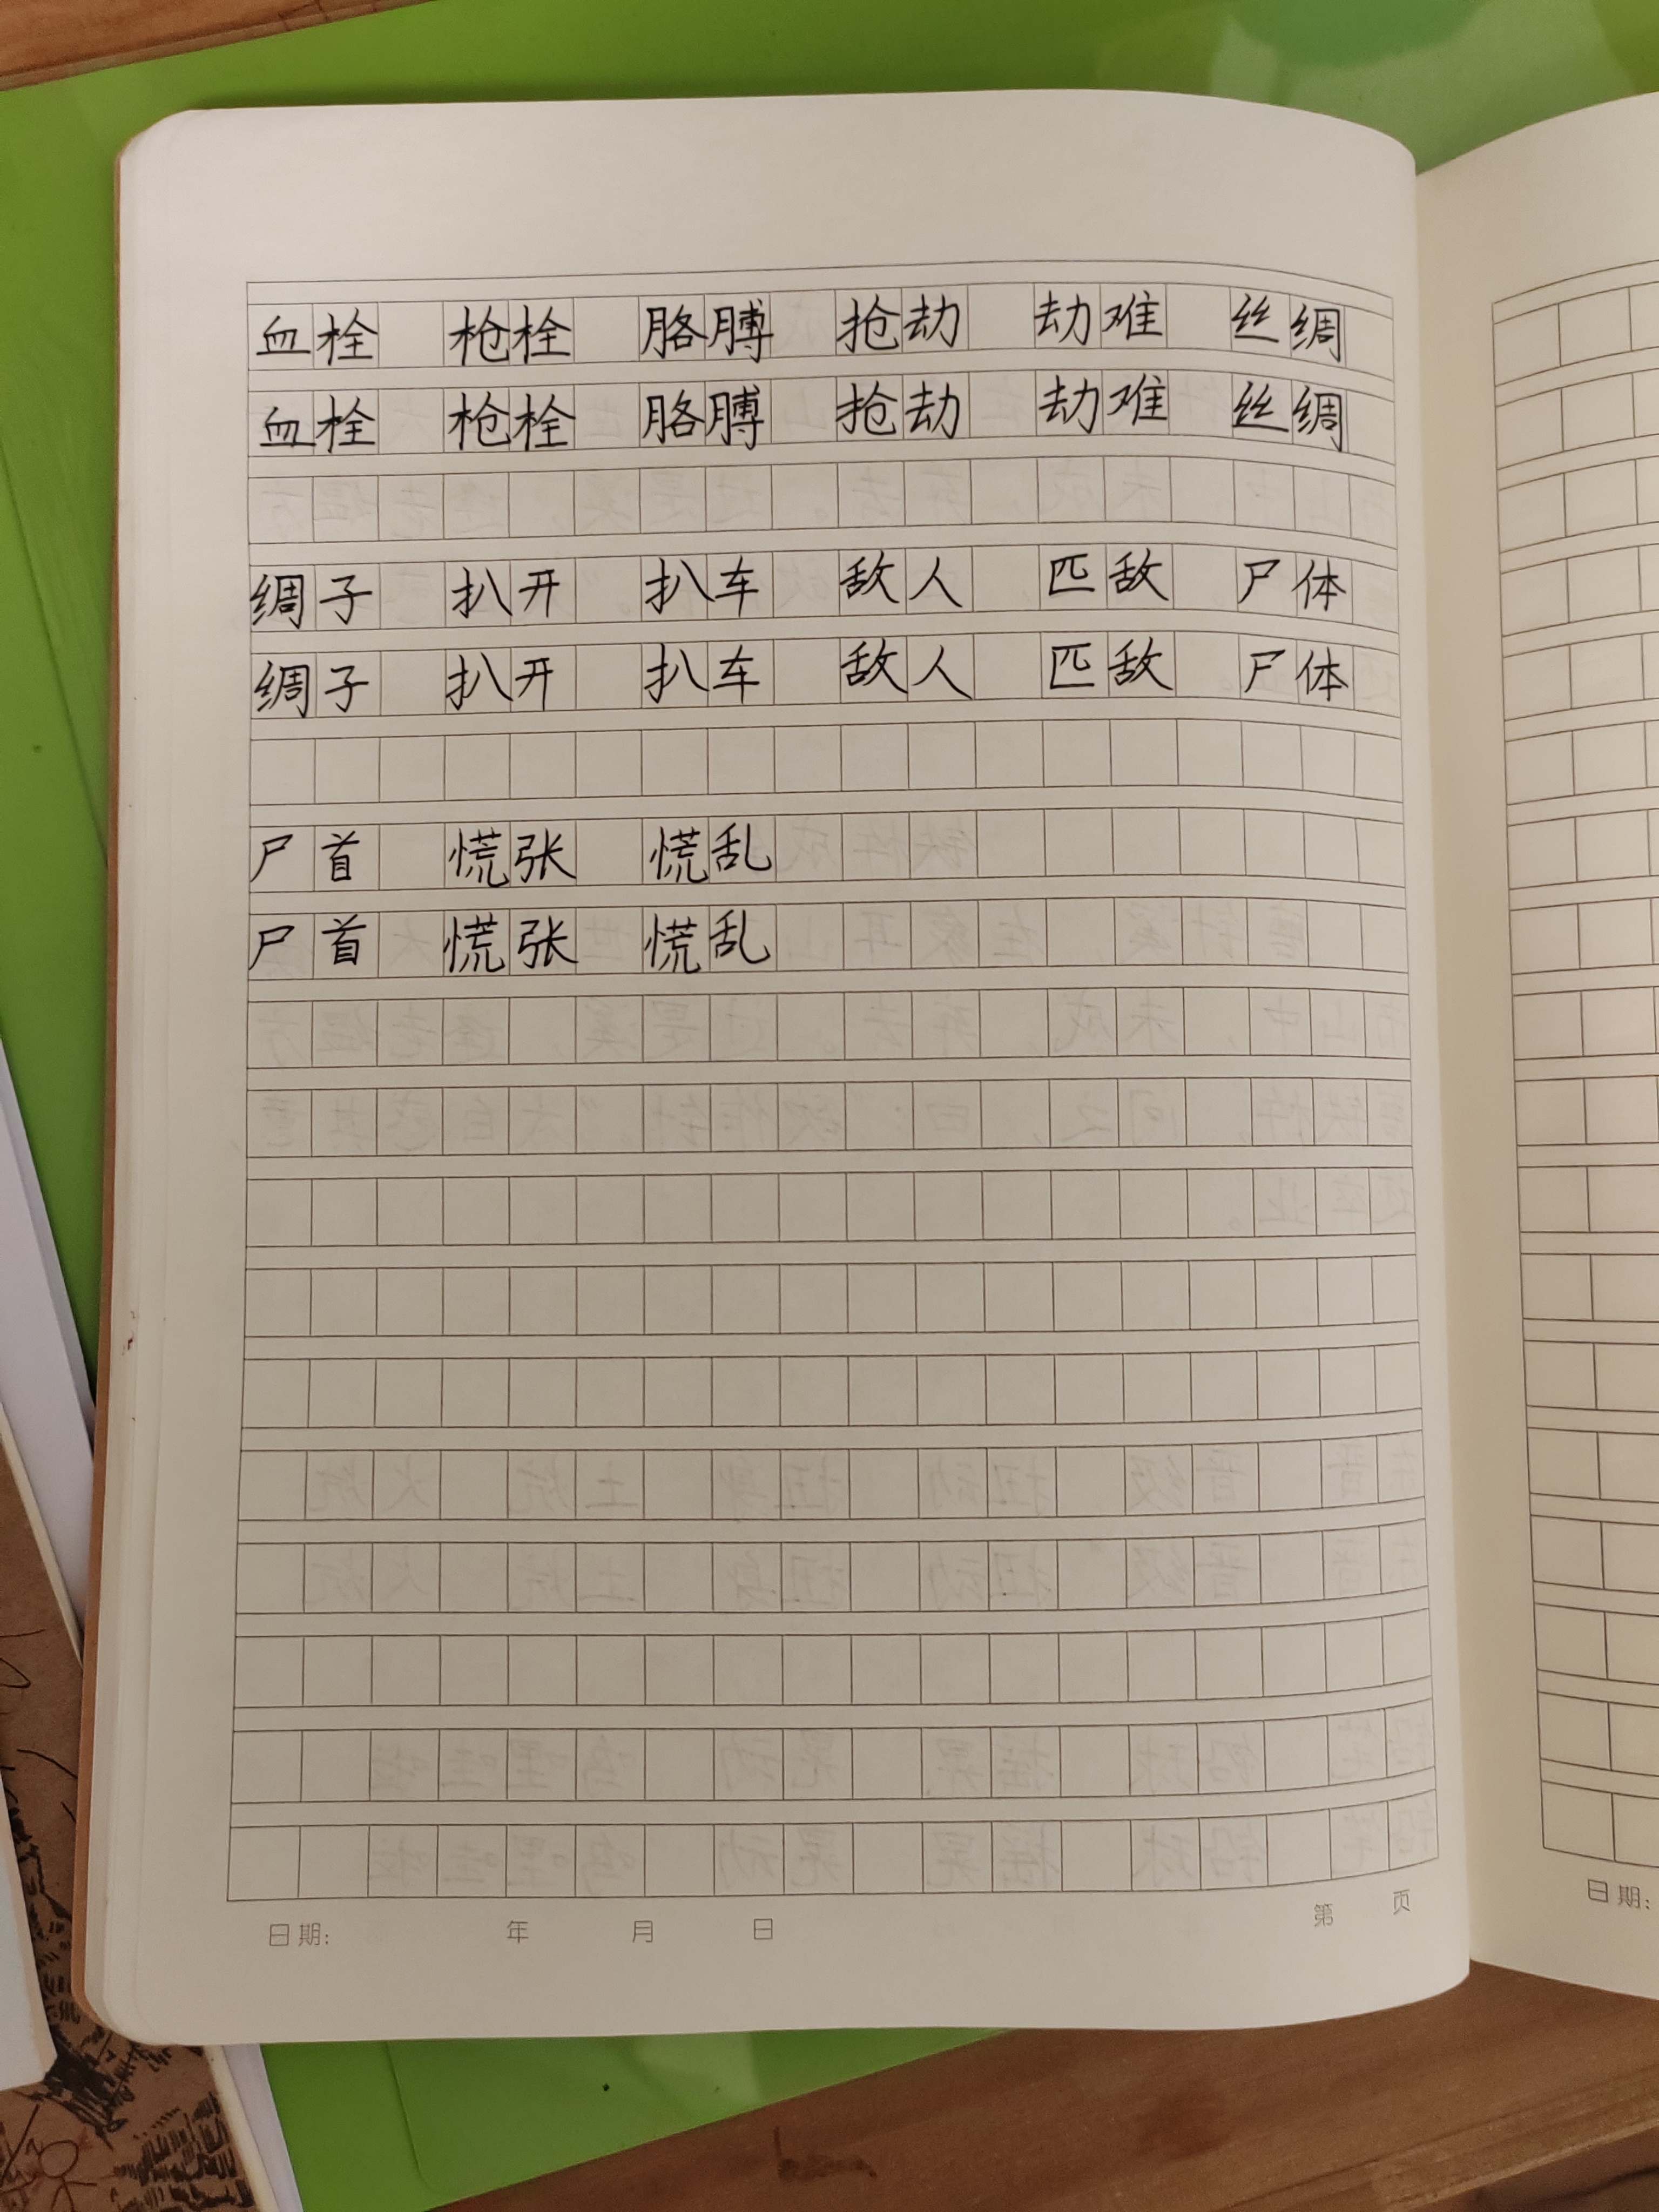 血栓 枪栓 胳膊 抢劫 劫难 丝绸
血栓 枪栓 胳膊 抢劫 劫难 丝绸
绸子 扒开 扒车 敌人 匹敌 尸体
绸子 扒开 扒车 敌人 匹敌 尸体
尸首 慌张 慌乱
尸首 慌张 慌乱
日期: 年 月 日 第 页
日期: